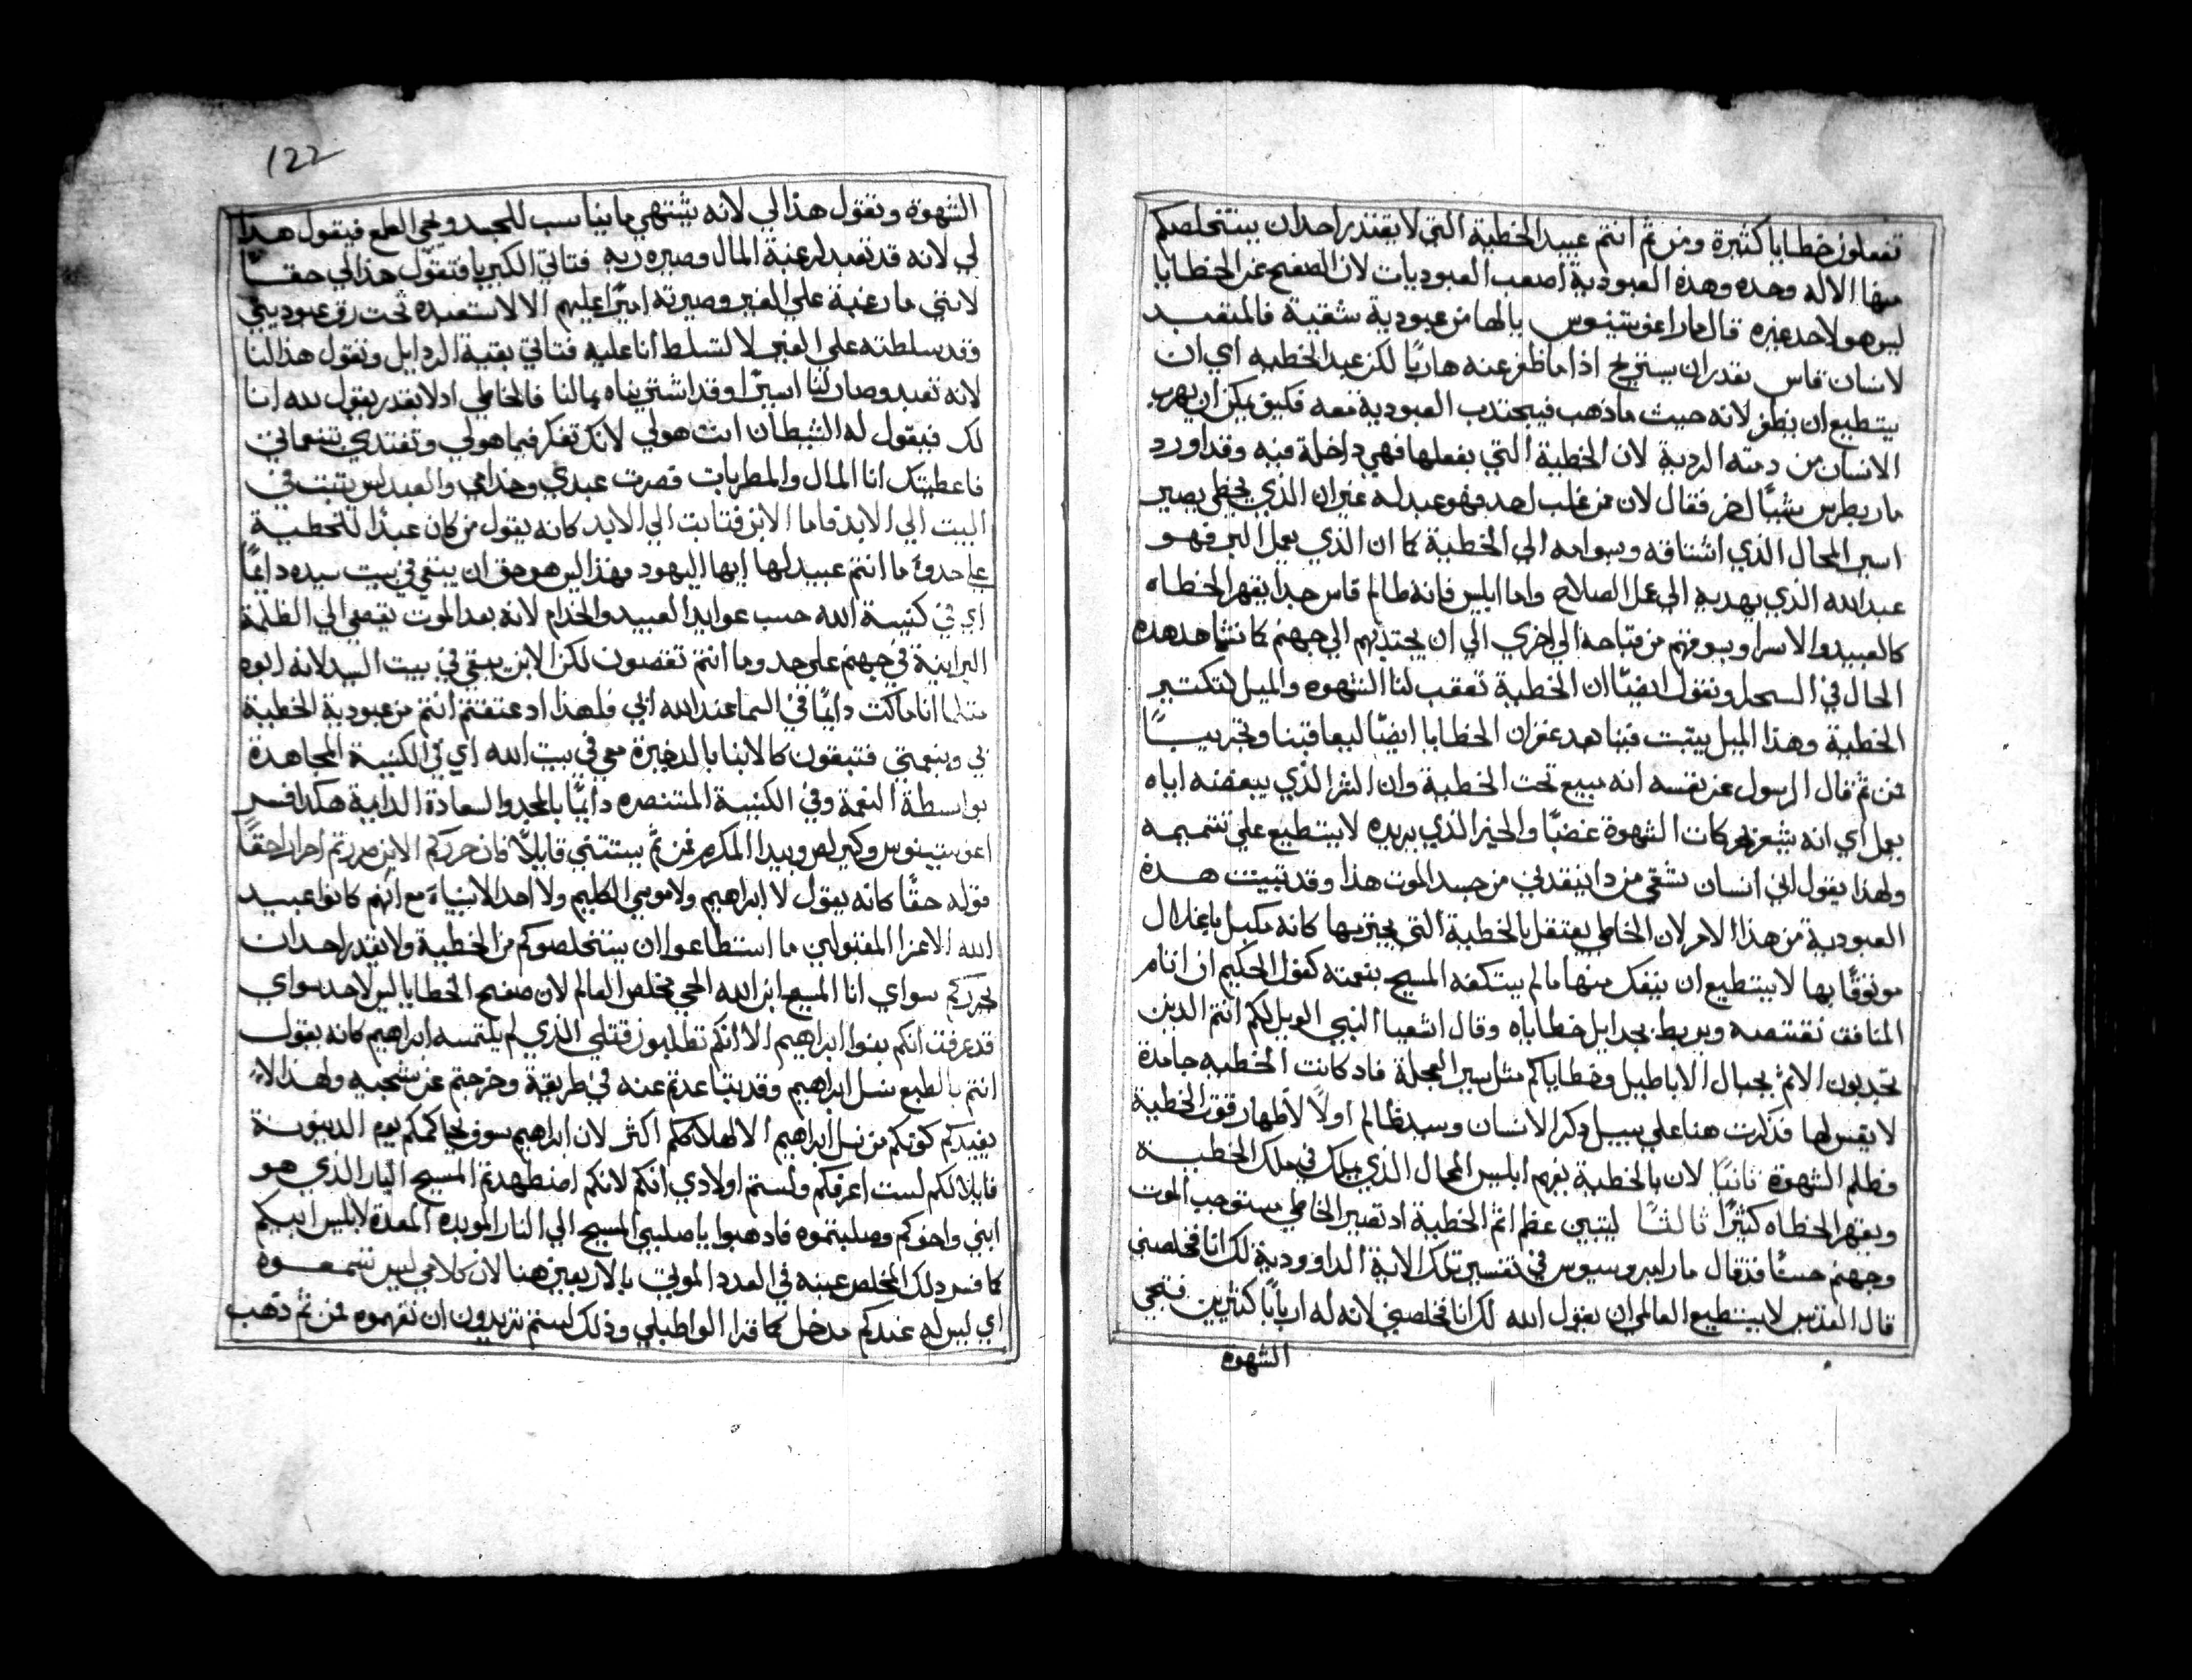 تفعلون خطايا كثيرة ومن ثم انتم عبيد الخطية التي لا يقتدر احد ان يستخلصكم
منها الا الله وحده وهذه العبودية اصعب العبوديات لان الصفح عن الخطايا
ليس هو لاحد غيره قال مار اغوستينوس يا لها من عبودية شقية فالمتعبد
لانسان قاس يقدر ان يستريح اذا ما ظفر عنه هاربًا لكن عبد الخطيه اي ان
يستطيع ان يطفر لانه حيث ما ذهب فيجتذب العبودية معه فكيف يمكن ان يهرب
الانسان من دمته الردية لان الخطية التي يفعلها فهي داخلة فيه وقد اورد
مار بطرس شيًا اخر فقال لان من غلب لاحد فهو عبد له غير ان الذي يخطي يصير
اسير المحال الذي اشتاقه وسوامه الى الخطية كما ان الذي يعمل البر فهو
عبد الله الذي يهديه الى عمل الصلاح واما ابليس فانه ظالم قاس جدا يقهر الخطاه
كالعبيد والاسرا ويسوقهم من قباحه الى اخري الي ان يجتذبهم الي جهنم كما نشاهد هذه
الحال في السحل ونقول ايضًا ان الخطية تعقب لنا الشهوه والميل لتكتير
الخطية وهذا الميل يتبت فينا بعد غفران الخطايا ايضًا ليعاقبنا وتجريبًا
فمن ثم قال الرسول عن نفسه انه مبيع تحت الخطية وان الشر الذي يبغضه اياه
يعمل اي انه يشعر بحركات الشهوة غصبًا والخير الذي يريده لا يستطيع على تتميمه
ولهذا يقول اني انسان شقي من ذا ينقدني من جسد الموت هذا وقد تبينت هذه
العبودية من هذا الامر لان الخاطي يعتقل بالخطية التي يجترمها كانه مكبل باغلال
موثوقًا بها لا يستطيع ان ينفك منها ما لم يتكفه المسيح بنعمته كقول الحكيم ان اتام
المنافق تقتنصه ويربط بحدايل خطاياه وقال اشعيا النبي الويل لكم انتم الدين
تجدبون الاتم بحبال الاباطيل وخطاياكم مثل سير العجلة فاد كانت الخطيه جامدة
لا نفس لها فدكرت هنا على سبيل دكر الانسان وسيد ظالم اولًا لاظهار قوة الخطية
وظلم الشهوة ثانيًا لان بالخطية يفهم ابليس المحال الذي يملك في ملك الخطية
ويقهر الخطاه كثيرًا ثالثًا ليتبين عظم اثم الخطية اد تصير الخاطي مستوجب الموت
وجهنم حسنًا فد قال مار امبروسيوس في تفسير تلك الاية الداوودية لك انا فخلصني
قال القديس لا يستطيع العالمي ان يقول الله لك انا فخلصني لانه له اربابًا كثيرين فتجي
الشهوة
122
الشهوة وتقول هذا لي لانه يشتهي ما يناسب للجسد ويجي الطمع فيقول هذا
لي لانه قد تعبد لرغبة المال وصيره ربه فتاتي الكبريا فتقول هذا لي حقًا
لانني ما رغبة على الغير وصيرته اميرًا عليهم الا لاستعبده تحت رق عبوديتي
وقد سلطته على الغير لاتسلط انا عليه فتاتي بقية الردايل وتقول هذا لنا
لانه تعبد وصار لنا اسيرًا وقد اشتريناه بمالنا فالخاطي اد لا يقدر يقول لله انا
لك فيقول له الشيطان انت هو لي لانك تفكر فيما هو لي وتفتدي بنعماتي
فاعطيتك انا المال والمطربات فصرت عبدي وخدامي والعبد ليس يتبت في
البيت الي الابد فاما الابن فتابت الي الابد كانه يقول من كان عبدًا للخطية
على حدو ما انتم عبيد لها ايها اليهود فهذا ليس هو حق ان يبقي في بيت سيده دايمًا
اي في كنيسة الله حسب عوايد العبيد والخدام لانه بعد الموت يقصي الي الظلمة
البرانية في جهنم على حد وما انتم تقصون لكن الابن يبقي في بيت السيد لانه ابوه
مثلما انا ماكث دايمًا في السما عند الله ابي فلهذا اد عتقتم انتم من عبودية الخطية
بي وبنعمتي فتبقون كالابنا بالدخيرة معي في بيت الله اي في الكنيسة المجاهدة
بواسطة النعمة وفي الكنيسة المنتصره دايمًا بالمجد والسعادة الدايمة هكدا فسر
اغوستينوس وكيرلص وبيدا المكرم فمن تم يستتني قايلًا فان حرركم الابن صرتم احرار حقًا
قوله حقًا كانه يقول لا ابراهيم ولا موسي الكليم ولا احد الانبياء مع انهم كانوا عبيد
الله الاعزا المقبولين ما استطاعوا ان يستخلصوكم من الخطية ولا يقدر احد ان
يحرركم سواي انا المسيح ابن الله الحي مخلص العالم لان صفح الخطايا ليس لاحد سواي
قد عرفت انكم بنوا ابراهيم الا انكم تطلبون قتلي الذي لم يلتمسه ابراهيم كانه يقول
انتم بالطبع نسل ابراهيم وقد تباعدتم عنه في طريقة وخرجتم عن سجيه ولهذا لا
يفيدكم كونكم من نسل ابراهيم الا لهلاككم اكثر لان ابراهيم سوف يحاكمكم يوم الدينونة
قايلًا لكم لست اعرفكم ولستم اولادي انكم لانكم اضطهدتم المسيح البار الذي هو
ابني واخوكم وصلبتموه فادهبوا يا صلبيي المسيح الي النار الموبده المعدة لابليس ابيكم
كما فسر دلك المخلص عينه في العدد الموفي بالاربعين هنا لان كلامي ليس تسمعوه
اي ليس له عندكم مدخل كما قرا الواطيلي وذلك لستم تريدون ان تفهموه فمن ثم دهب